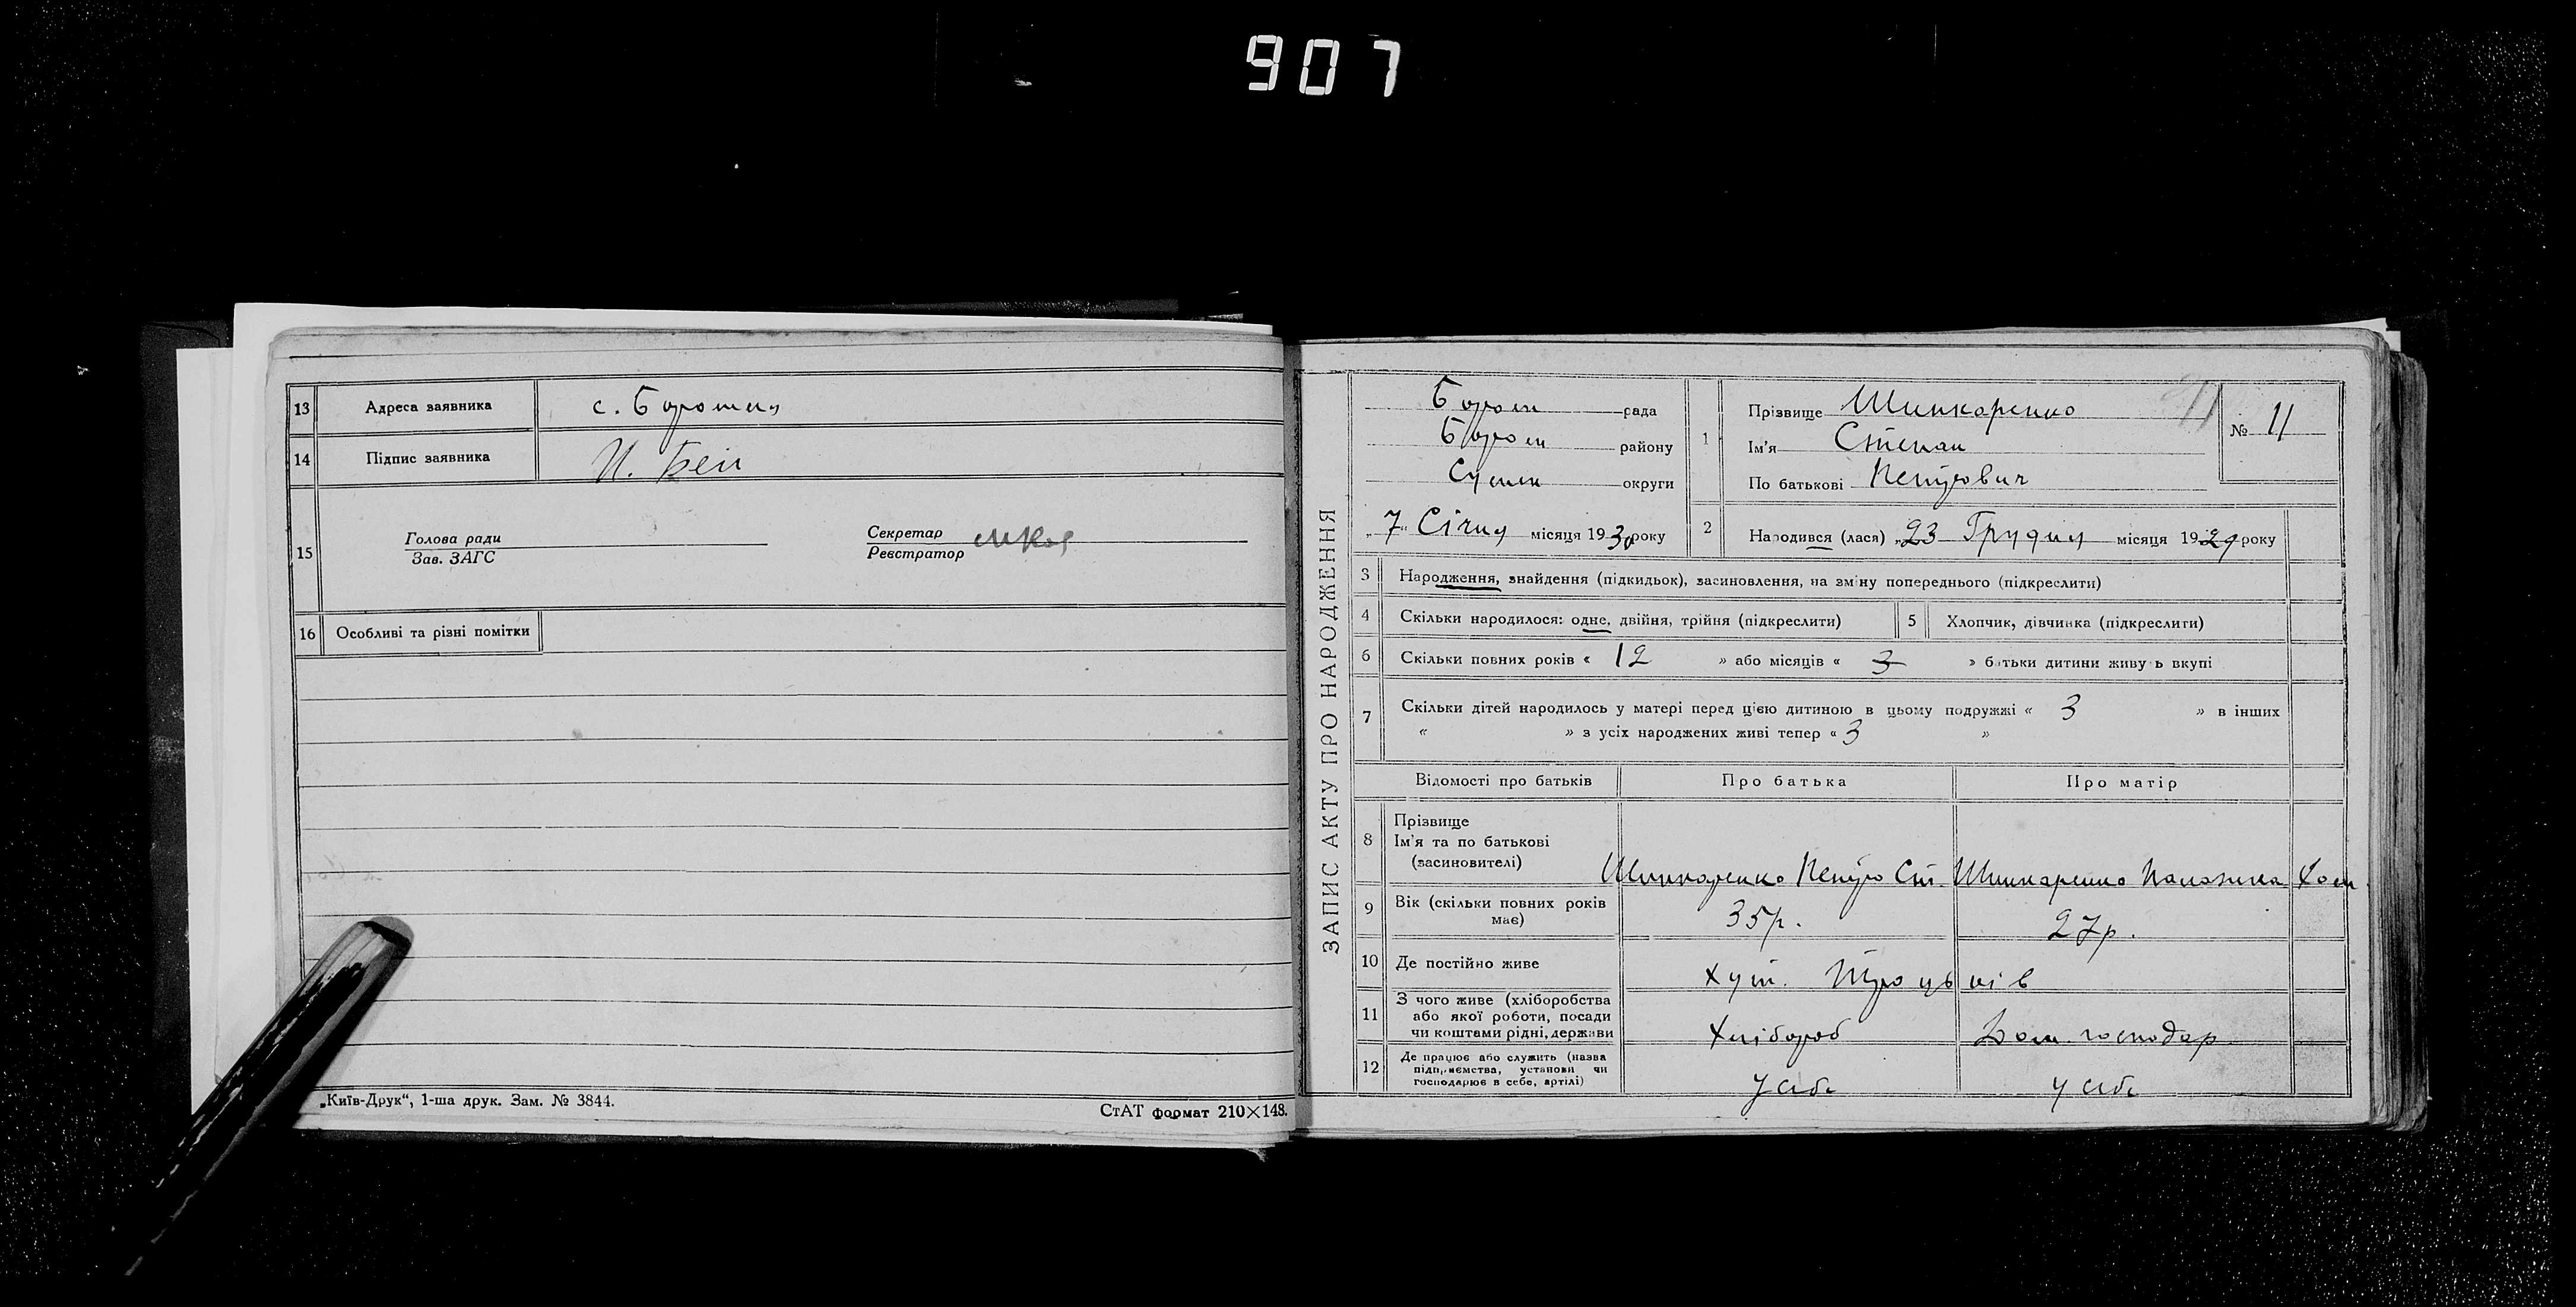 907
13 Адреса заявника с. Боромля
14 Підпис заявника
15 Голова ради
Зав. ЗАГС
Секретар
Реєстратор
16 Особливі та різні помітки
„Київ-Друк“, 1-ша друк. Зам. № 3844.
СтАТ формат 210×148.
ЗАПИС АКТУ ПРО НАРОДЖЕННЯ
Бором рада
Бором району
Сумськ округи
„7“ Січня місяця 1930 року
1 Прізвище Шинкаренко
Ім'я Степан
По батькові Петрович
№ 11
11
2 Народився (лася) „23 Грудня місяця 1929 року
3 Народження, знайдення (підкидьок), засиновлення, на зміну попереднього (підкреслити)
4 Скільки народилося: одне, двійня, трійня (підкреслити)
5 Хлопчик, дівчинка (підкреслити)
6 Скільки повних років « 12 » або місяців « 3 » батьки дитини живуть вкупі
7 Скільки дітей народилось у матері перед цією дитиною в цьому подружжі « 3 » в інших
« » з усіх народжених живі тепер « 3 »
Відомості про батьків Про батька Про матір
8 Прізвище
Ім'я та по батькові
(засиновителі)
Шинкаренко Петро Ст. Шинкаренко Палажка Хом.
9 Вік (скільки повних років
має)
35р. 27р.
10 Де постійно живе хут.
11 З чого живе (хліборобства
або якої роботи, посади
чи коштами рідні, держави
Хлібороб Дом. господар
12 Де працює або служить (назва
підприємства, установи чи
господарює в себе, артілі)
у себе у себе